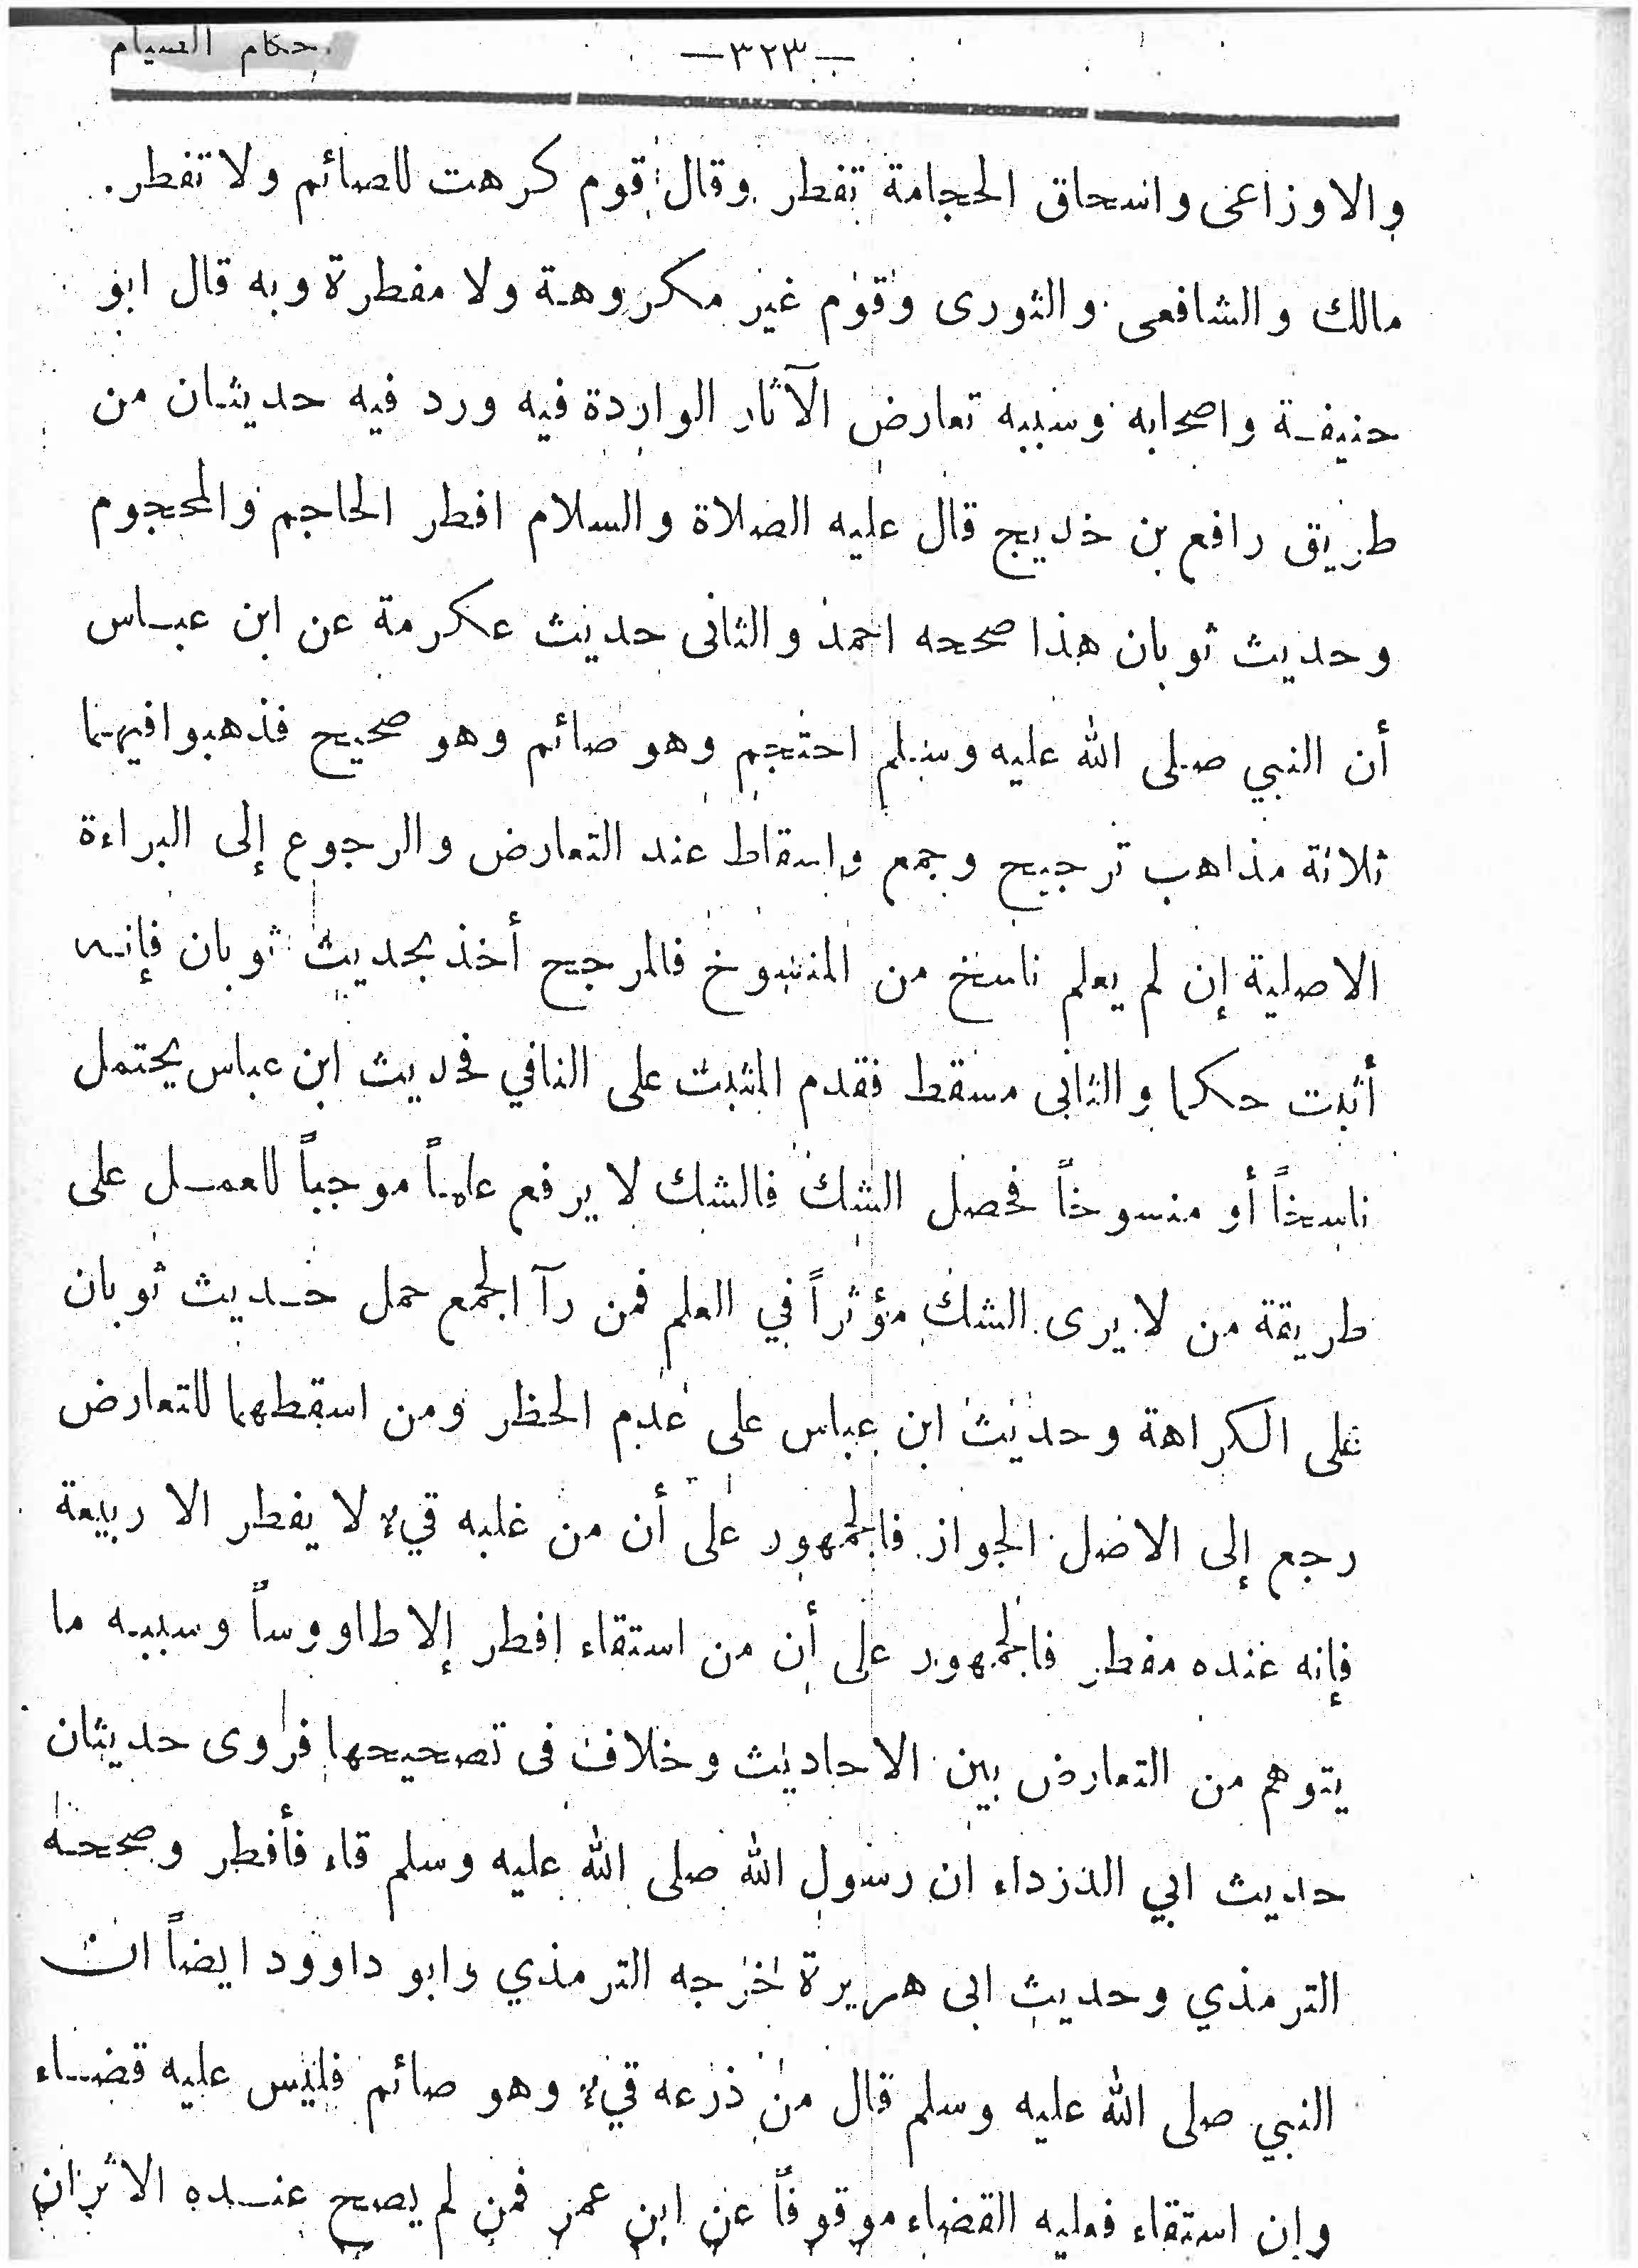 حكام الصيام
—٣٢٣—
والاوزاعى واسحاق الحجامة تفطر وقال قوم كرهت للصائم ولا تفطر.
مالك والشافعى والثورى وقوم غير مكروهة ولا مفطرة وبه قال ابو
حنيفة واصحابه وسببه تعارض الآثار الواردة فيه ورد فيه حديثان من
طريق رافع بن خديج قال عليه الصلاة والسلام افطر الحاجم والمحجوم
وحديث ثوبان هذا صححه احمد والثانى حديث عكرمة عن ابن عباس
أن النبي صلى الله عليه وسلم احتجم وهو صائم وهو صحيح فذهبوا فيهما
ثلاثة مذاهب ترجيح وجمع واسقاط عند التعارض والرجوع إلى البراءة
الاصلية إن لم يعلم ناسخ من المنسوخ فالمرجح أخذ بحديث ثوبان فإنه
أثبت حكما والثانى مسقط فقدم المثبت على النافي فحديث ابن عباس يحتمل
ناسخاً أو منسوخاً فحصل الشك فالشك لا يرفع علماً موجباً للعمل على
طريقة من لا يرى الشك مؤثراً في العلم فمن رآ الجمع حمل حديث ثوبان
على الكراهة وحديث ابن عباس على عدم الحظر ومن اسقطهما للتعارض
رجع إلى الاصل الجواز فالجمهور على أن من غلبه قيء لا يفطر الا ربيعة
فإنه عنده مفطر فالجمهور على أن من استقاء افطر إلا طاووساً وسببه ما
يتوهم من التعارض بين الاحاديث وخلاف فى تصحيحها فروى حديثان
حديث ابي الدرداء ان رسول الله صلى الله عليه وسلم قاء فأفطر وصححه
الترمذي وحديث ابى هريرة اخرجه الترمذي وابو داوود ايضاً ان
النبي صلى الله عليه وسلم قال من ذرعه قيء وهو صائم فليس عليه قضاء
وإن استقاء فعليه القضاء موقوفاً عن ابن عمر فمن لم يصح عنده الاثران